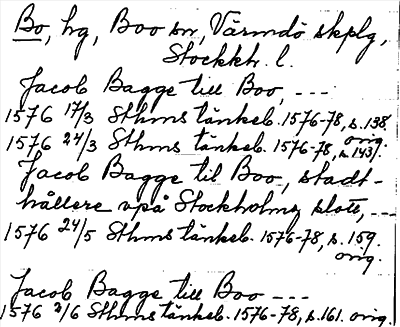 Bo, hg, Boo sn, Värmdö skplg,
Stockh. l.
Jacob Bagge till Boo, ---
1576 17/3 Sthms tänkeb. 1576-78, s. 138.
orig.
1576 24/3 Sthms tänkeb. 1576-78, s. 143/.
Jacob Bagge til Boo, stadt-
hållere vpå Stockholms slott, ---
1576 24/5 Sthms tänkeb. 1576-78, s. 159.
orig.
Jacob Bagge till Boo ---
1576 2/6 Sthms tänkeb. 1576-78, s. 161. orig.